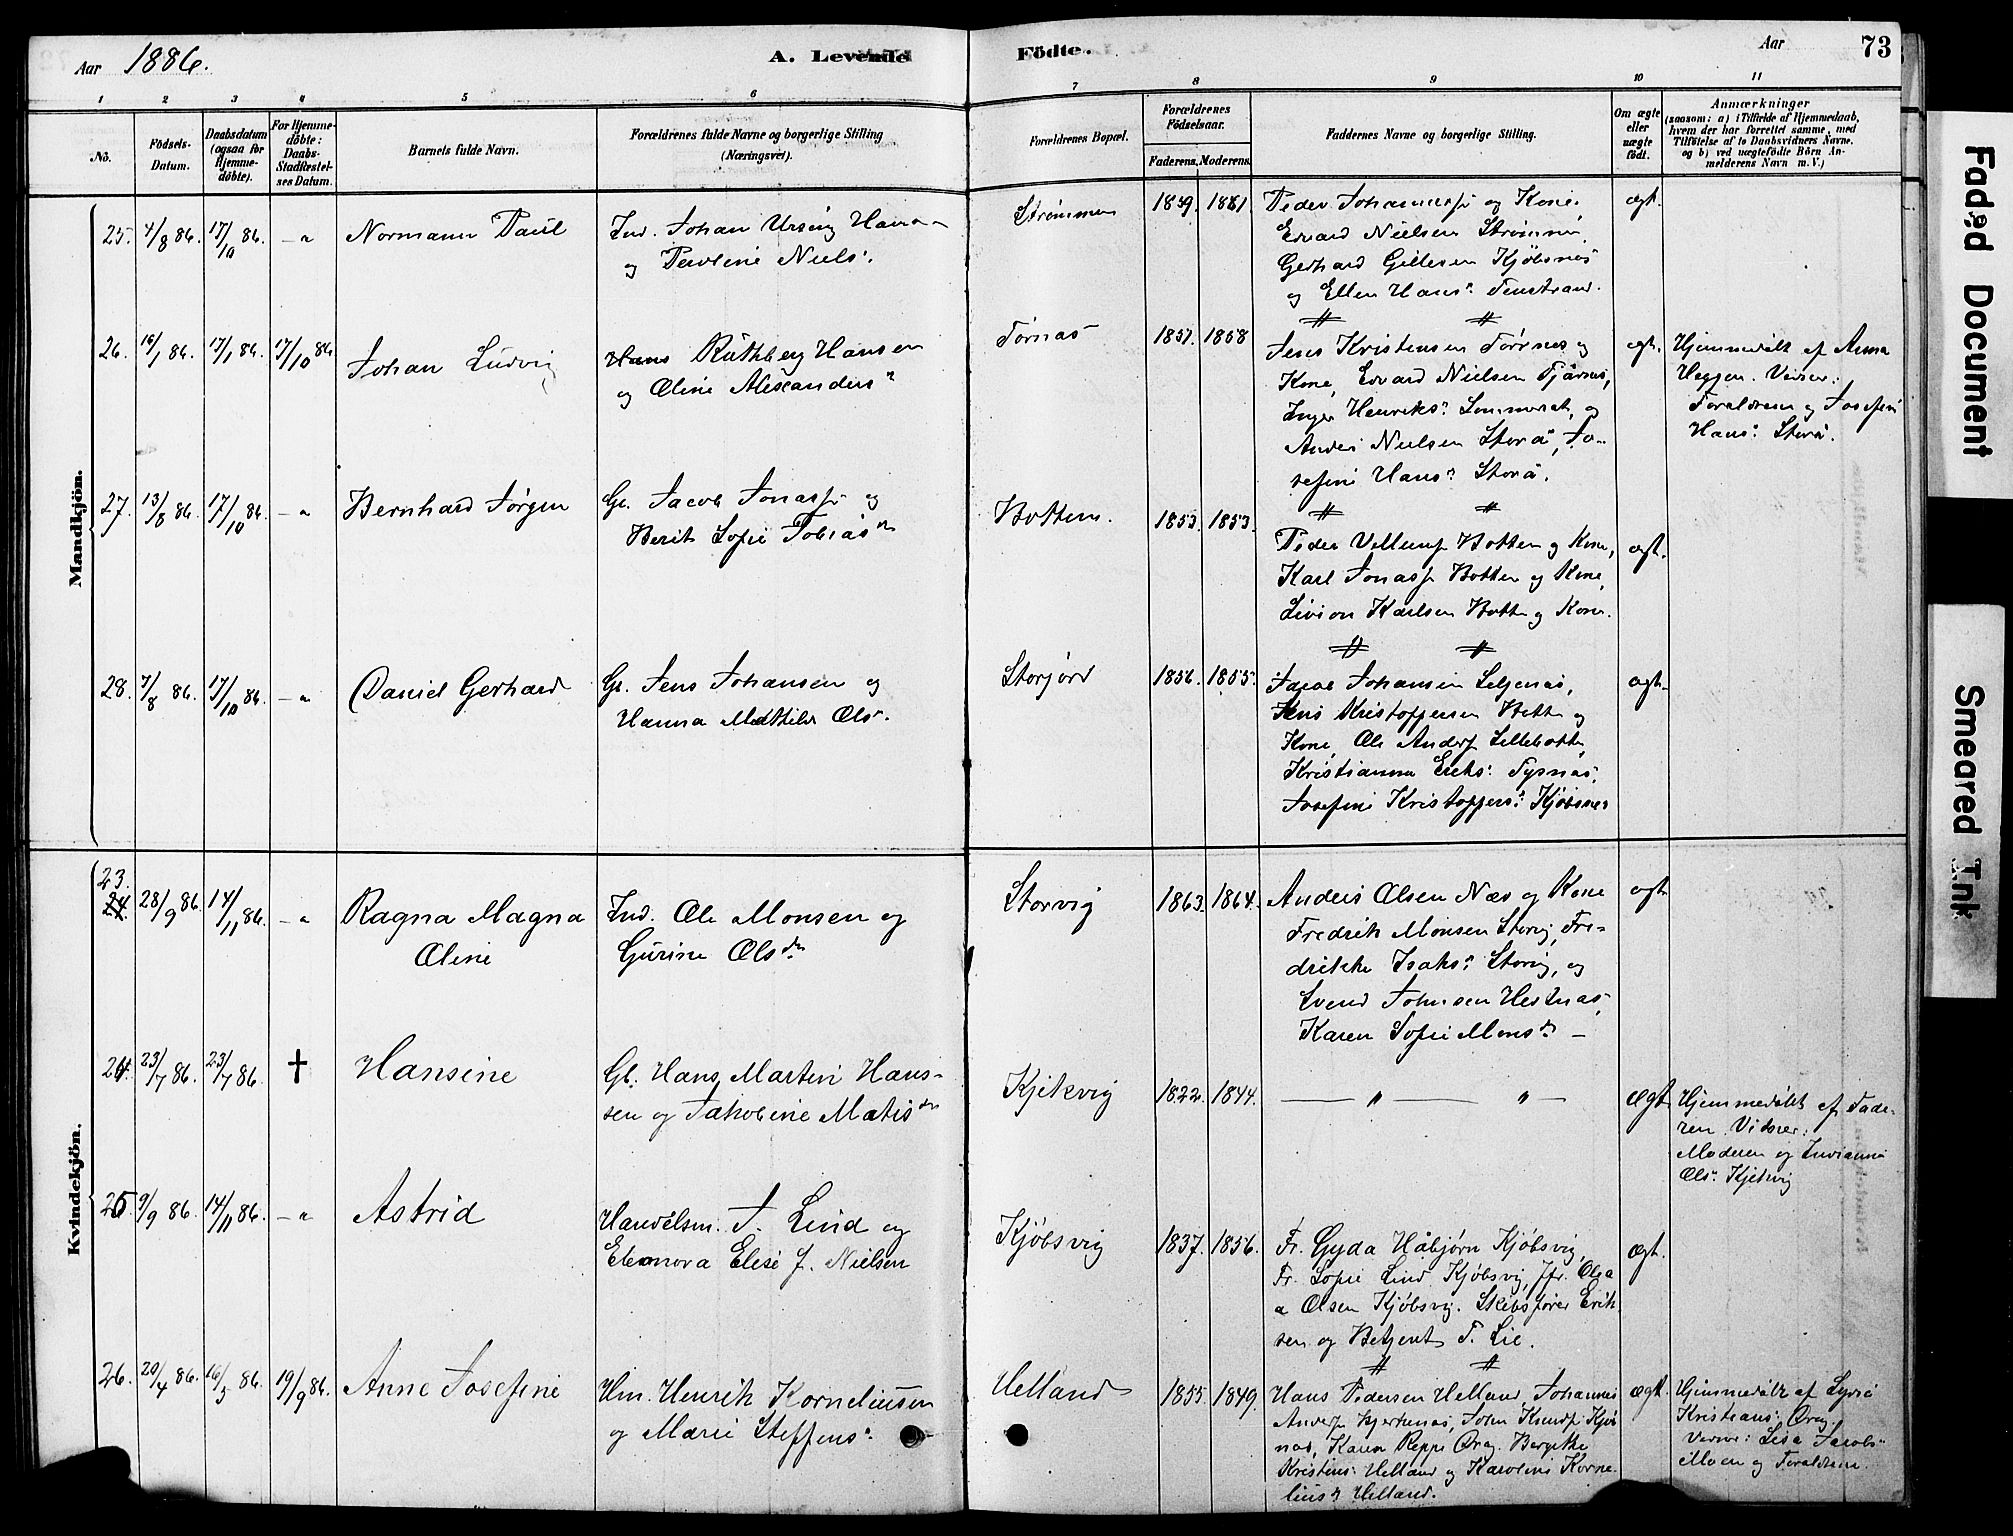 Aar 1886.
A. Levende Födte.
Aar
73
1 2 3 4 5 6 7 8 9 10 11
No.
Födsels-Datum.
Daabsdatum (ogsaa for Hjemme-döbte).
For Hjemme-döbte: Daabs-Stadfæstel-ses Datum.
Barnets fulde Navn.
Forældrenes fulde Navne og borgerlige Stilling (Næringsvei).
Forældrenes Bopæl.
Forældrenes Födselsaar.
Faderens. Moderens.
Faddernes Navne og borgerlige Stilling.
Om ægte eller uægte födt.
Anmærkninger
(saasom: a) i Tilfælde af Hjemmedaab,
hvem der har forrettet samme, med
Tilföielse af to Daabsvidners Navne,
og b) ved uægtefödte Börn An-
melderens Navn m. V.)
Mandkjön.
25. 4/8 86. 17/10 86. – "
Normann Paul
Ind. Johan Ursin Hans
og Pauline Niels:
Strømmen
1859. 1861.
Peder Johanness. og Kone.
Edvard Nielsen Strømmen,
Gerhard Gillesen Kjöbsnäs
og Ellen Hans: Finstrand.
ægt.
26. 16/1 86. 17/1 86. 17/10 86.
Johan Ludvig
Hans Ruthberg Hansen
og Oline Alexanders:
Tørnäs
1857. 1858
Jens Kristensen Tørnes og
Kone, Edvard Nielsen Tjärnes,
Inger Henriks: Sommerset, og
Anders Nielsen Storå, Jo-
sefine Hans: Storå.
ægt.
Hjemmedöbt af Anna
Heggen. Vidner:
Forældrene og Josefine
Hans: Storå.
27. 13/8 86. 17/10 86. – "
Bernhard Jørgen
Gb. Jacob Jonass. og
Berit Sofie Tobias dr
Botten.
1853. 1853.
Peder Villums. Botten og Kone,
Karl Jonass. Botten og Kone,
Sivion Karlsen Botten og Kone.
ægt.
28. 7/8 86. 17/10 86. – "
Daniel Gerhard
Gb. Jens Johansen og
Hanna Mathilde Ols:
Storjord
1856. 1855.
Jacob Johansen Seljenäs,
Jens Kristoffersen Botten og
Kone, Ole Anders. Lillebotten,
Kristianna Eriks: Tysnäs,
Josefine Kristoffers: Kjöbsnes
ægt.
Kvindekjön.
23. 28/9 86. 14/11 86. – "
Ragna Magna
Oline
Ind. Ole Monsen og
Gurine Ols dr
Storvig
1863. 1864.
Anders Olsen Næs og Kone
Fredrik Monsen Storvig, Fre-
drikke Isaks: Storvig, og
Svend Johnsen Hestnäs,
Karen Sofie Mons dr –
ægt.
24. 23/7 86. 23/7 86. †
Hansine
Gb. Hans Martin Han-
sen og Jakobine Matis dr
Kjikvig
1822. 1844.
— " — " —
ægt.
Hjemmedöbt af Fade-
ren. Vidner:
Moderen og Invianna
Ols: Kjikvig
25. 9/9 86. 14/11 86. – "
Astrid
Handelsm. J. Lind og
Elenora Elise f. Nielsen
Kjöbsvig
1837. 1856.
Fr. Gyda Håbjørn Kjöbsvig,
Fr. Sofie Lind Kjöbsvig, Jfr. Olea
Olsen Kjöbsvig. Skibsfører Erik-
sen og Betjent T. Lie.
ægt.
26. 20/4 86. 16/5 86. 19/9 86.
Anne Josefine
Hm. Henrik Korneliussen
og Marie Steffens:
Helland
1855. 1849.
Hans Pedersen Helland, Johannes
Anders. Hjertenäs, John Knuds. Kjöbs-
näs, Karen Reppe Drag. Bergitte
Kristens: Helland og Karoline Korne-
lius dr Helland.
ægt.
Hjemmedöbt af
Kristians: Drag.
Vidner: Lisa Jacobs:
Moen og Forældrene.
Faded Document
Smeared Ink